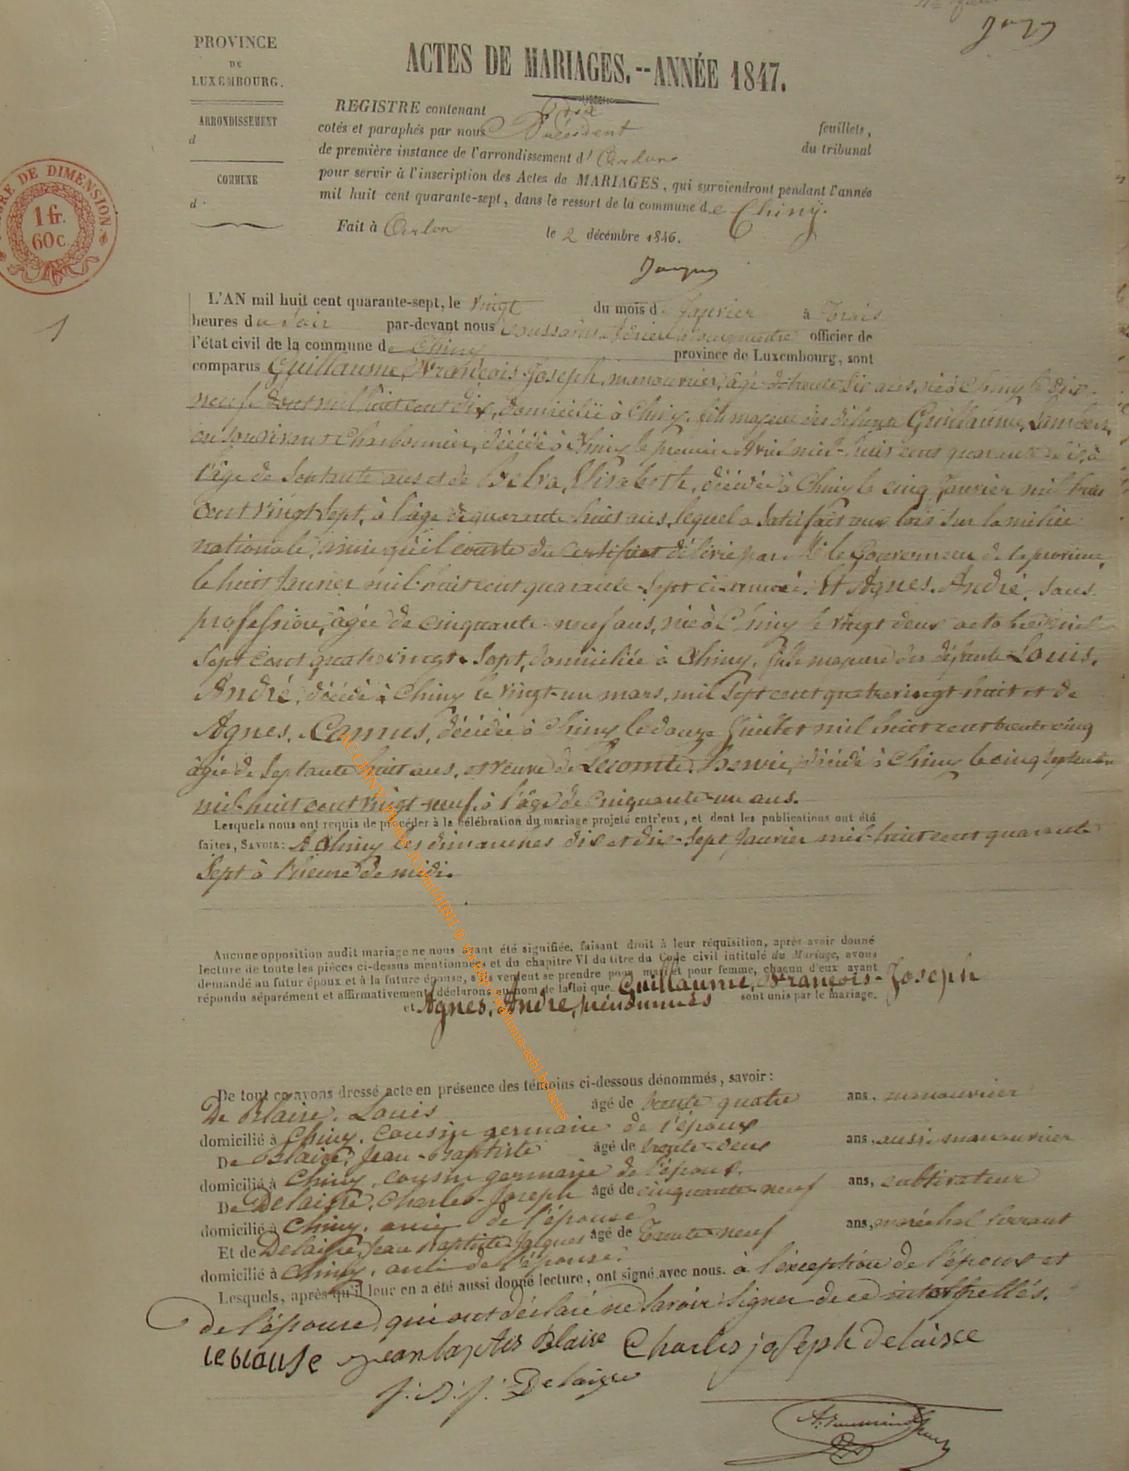 PROVINCE
DE
LUXEMBOURG.
ARRONDISSEMENT
d
COMMUNE
d
TIMBRE DE DIMENSION
1 fr.
60 c.
1
ACTES DE MARIAGES.--ANNÉE 1847.
REGISTRE contenant feuillets,
cotés et paraphés par nous Président du tribunal
de première instance de l'arrondissement d'Arlon
pour servir à l'inscription des Actes de MARIAGES, qui surviendront pendant l'année
mil huit cent quarante-sept, dans le ressort de la commune de Chiny.
Fait à Arlon le 2 décembre 1846.
L'AN mil huit cent quarante-sept, le vingt du mois d Janvier à trois
heures du soir par-devant nous officier de
l'état civil de la commune de Chiny province de Luxembourg, sont
comparus Guillaume, François-Joseph, manouvrier, âgé de trente six ans, né à Chiny le dix-
neuf août mil huit cent dix, domicilié à Chiny, fils majeur des défunts Guillaume, Lambert,
en son vivant Charbonnier, décédé à Chiny le premier Avril mil-huit cent quarante à
l'âge de Septante ans et de Elisabeth, décédée à Chiny le cinq Janvier mil huit
cent vingt sept, à l'âge de quarante huit ans, lequel a satisfait aux lois sur la milice
nationale, ainsi qu'il conste du certificat délivré par Mr le Gouverneur de la province,
le huit Janvier mil huit cent quarante Sept ci-annexé. Et Agnes. André, sans
profession, âgée de cinquante neuf ans, née à Chiny le vingt deux octobre mil
sept cent quatre vingt-Sept, domiciliée à Chiny, fille majeure des défunts Louis,
André, décédé à Chiny le vingt-un mars, mil sept cent quatre vingt huit et de
Agnes, Camus, décédée à Chiny le douze Juillet mil huit cent trente cinq
âgée de Septante huit ans, et veuve de Lecomte, Henri, décédé à Chiny le cinq Septembre
mil-huit cent vingt-neuf, à l'âge de Cinquante-un ans.
Lesquels nous ont requis de procéder à la célébration du mariage projeté entr'eux, et dont les publications ont été
faites, SAVOIR: A Chiny les dimanches dix et dix-Sept Janvier mil-huit cent quarante
Sept à l'heure de midi.
Aucune opposition audit mariage ne nous ayant été signifiée, faisant droit à leur réquisition, après avoir donné
lecture de toute les pièces ci-dessus mentionnées et du chapitre VI du titre du Code civil intitulé du Mariage, avons
demandé au futur époux et à la future épouse, s'ils veulent se prendre pour mari et pour femme, chacun d'eux ayant
répondu séparément et affirmativement, déclarons au nom de la loi que Guillaume, François-Joseph
et Agnes, André, prénommés sont unis par le mariage.
De tout ce avons dressé acte en présence des témoins ci-dessous dénommés, savoir:
De Blaise, Louis âgé de trente quatre ans, manouvrier
domicilié à Chiny, cousin germain de l'époux
De Blaise, Jean-Baptiste âgé de trente-deux ans, aussi manouvrier
domicilié à Chiny, cousin germain de l'époux.
De Delaisse, Charles-Joseph âgé de cinquante-neuf ans, cultivateur
domicilié à Chiny, ami de l'épouse
Et de Delaisse, Jean Baptiste Jacques âgé de Trente-neuf ans, maréchal ferrant
domicilié à Chiny, ami de l'épouse.
Lesquels, après qu'il leur en a été aussi donné lecture, ont signé avec nous. à l'exception de l'époux et
de l'épouse, qui ont déclaré ne savoir signer de ce interpellés.
jean baptis Blaise Charles joseph Delaisse
J. B. J. Delaisse